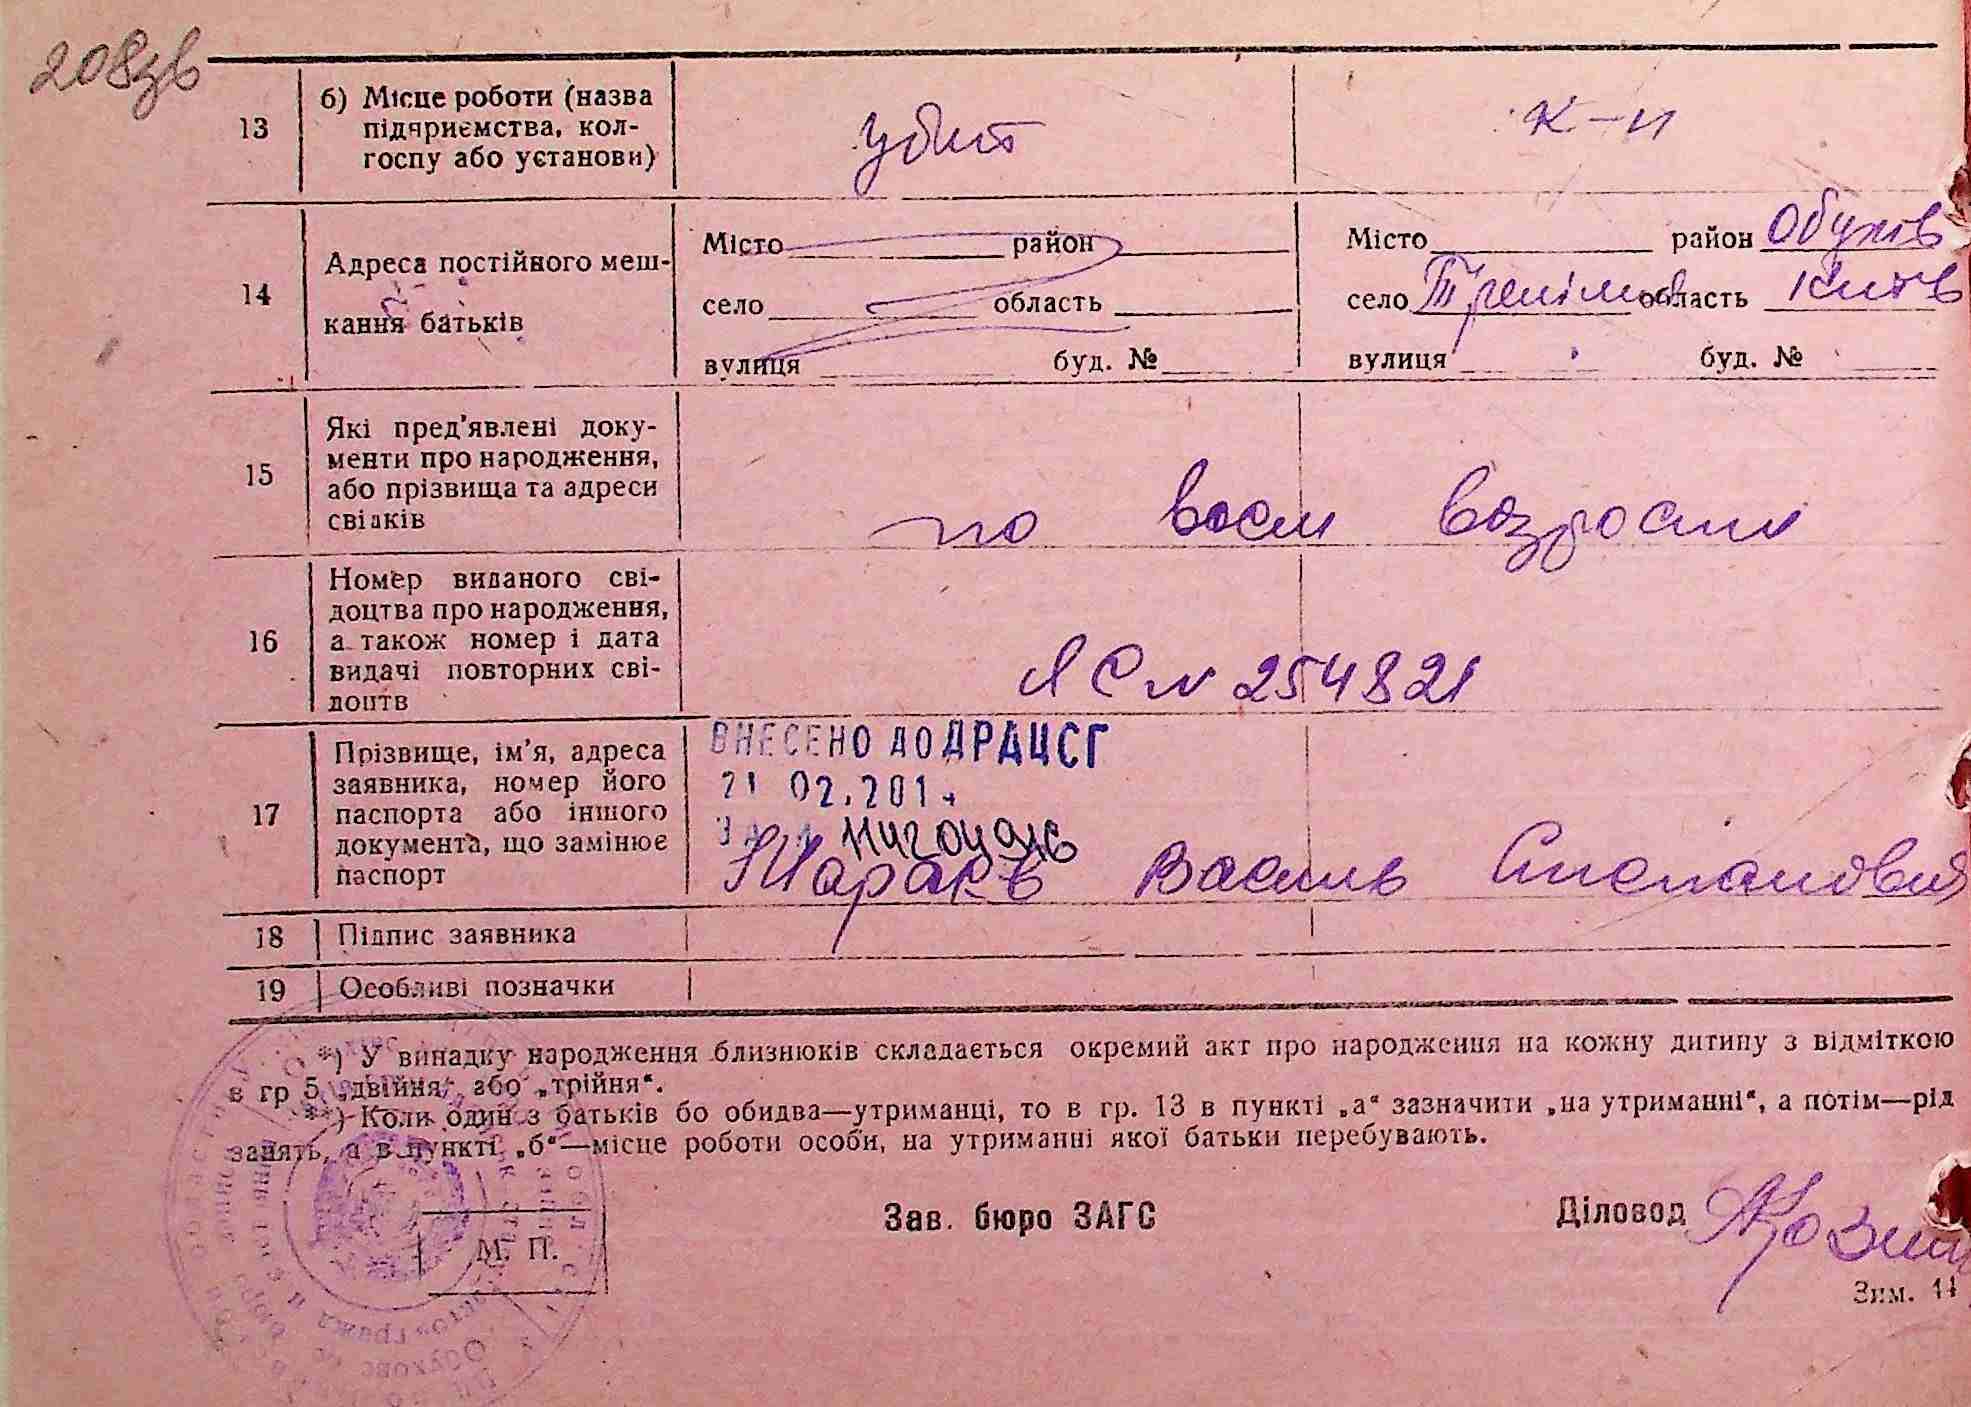 208зв
13
б) Місце роботи (назва
підприємства, кол-
госпу або установи)
убит
к-п
14
Адреса постійного меш-
кання батьків
Місто район
село область
вулиця буд. №
Місто район Обухів
село область Київ
вулиця буд. №
15
Які пред'явлені доку-
менти про народження,
або прізвища та адреси
свідків
по восм возрасту
16
Номер виданого сві-
доцтва про народження,
а також номер і дата
видачі повторних сві-
доцтв
ЯС № 254821
17
Прізвище, ім'я, адреса
заявника, номер його
паспорта або іншого
документа, що замінює
паспорт
ВНЕСЕНО ДО ДРАЦСГ
21 02.201
Василь Степанович
18 Підпис заявника
19 Особливі позначки
*) У випадку народження близнюків складається окремий акт про народження на кожну дитину з відміткою
в гр 5 „двійня“ або „трійня“.
**) Коли один з батьків бо обидва—утриманці, то в гр. 13 в пункті „а“ зазначити „на утриманні“, а потім—рід
занять, а в пункті „б“—місце роботи особи, на утриманні якої батьки перебувають.
М. П.
Зав. бюро ЗАГС
Діловод
Зим. 14